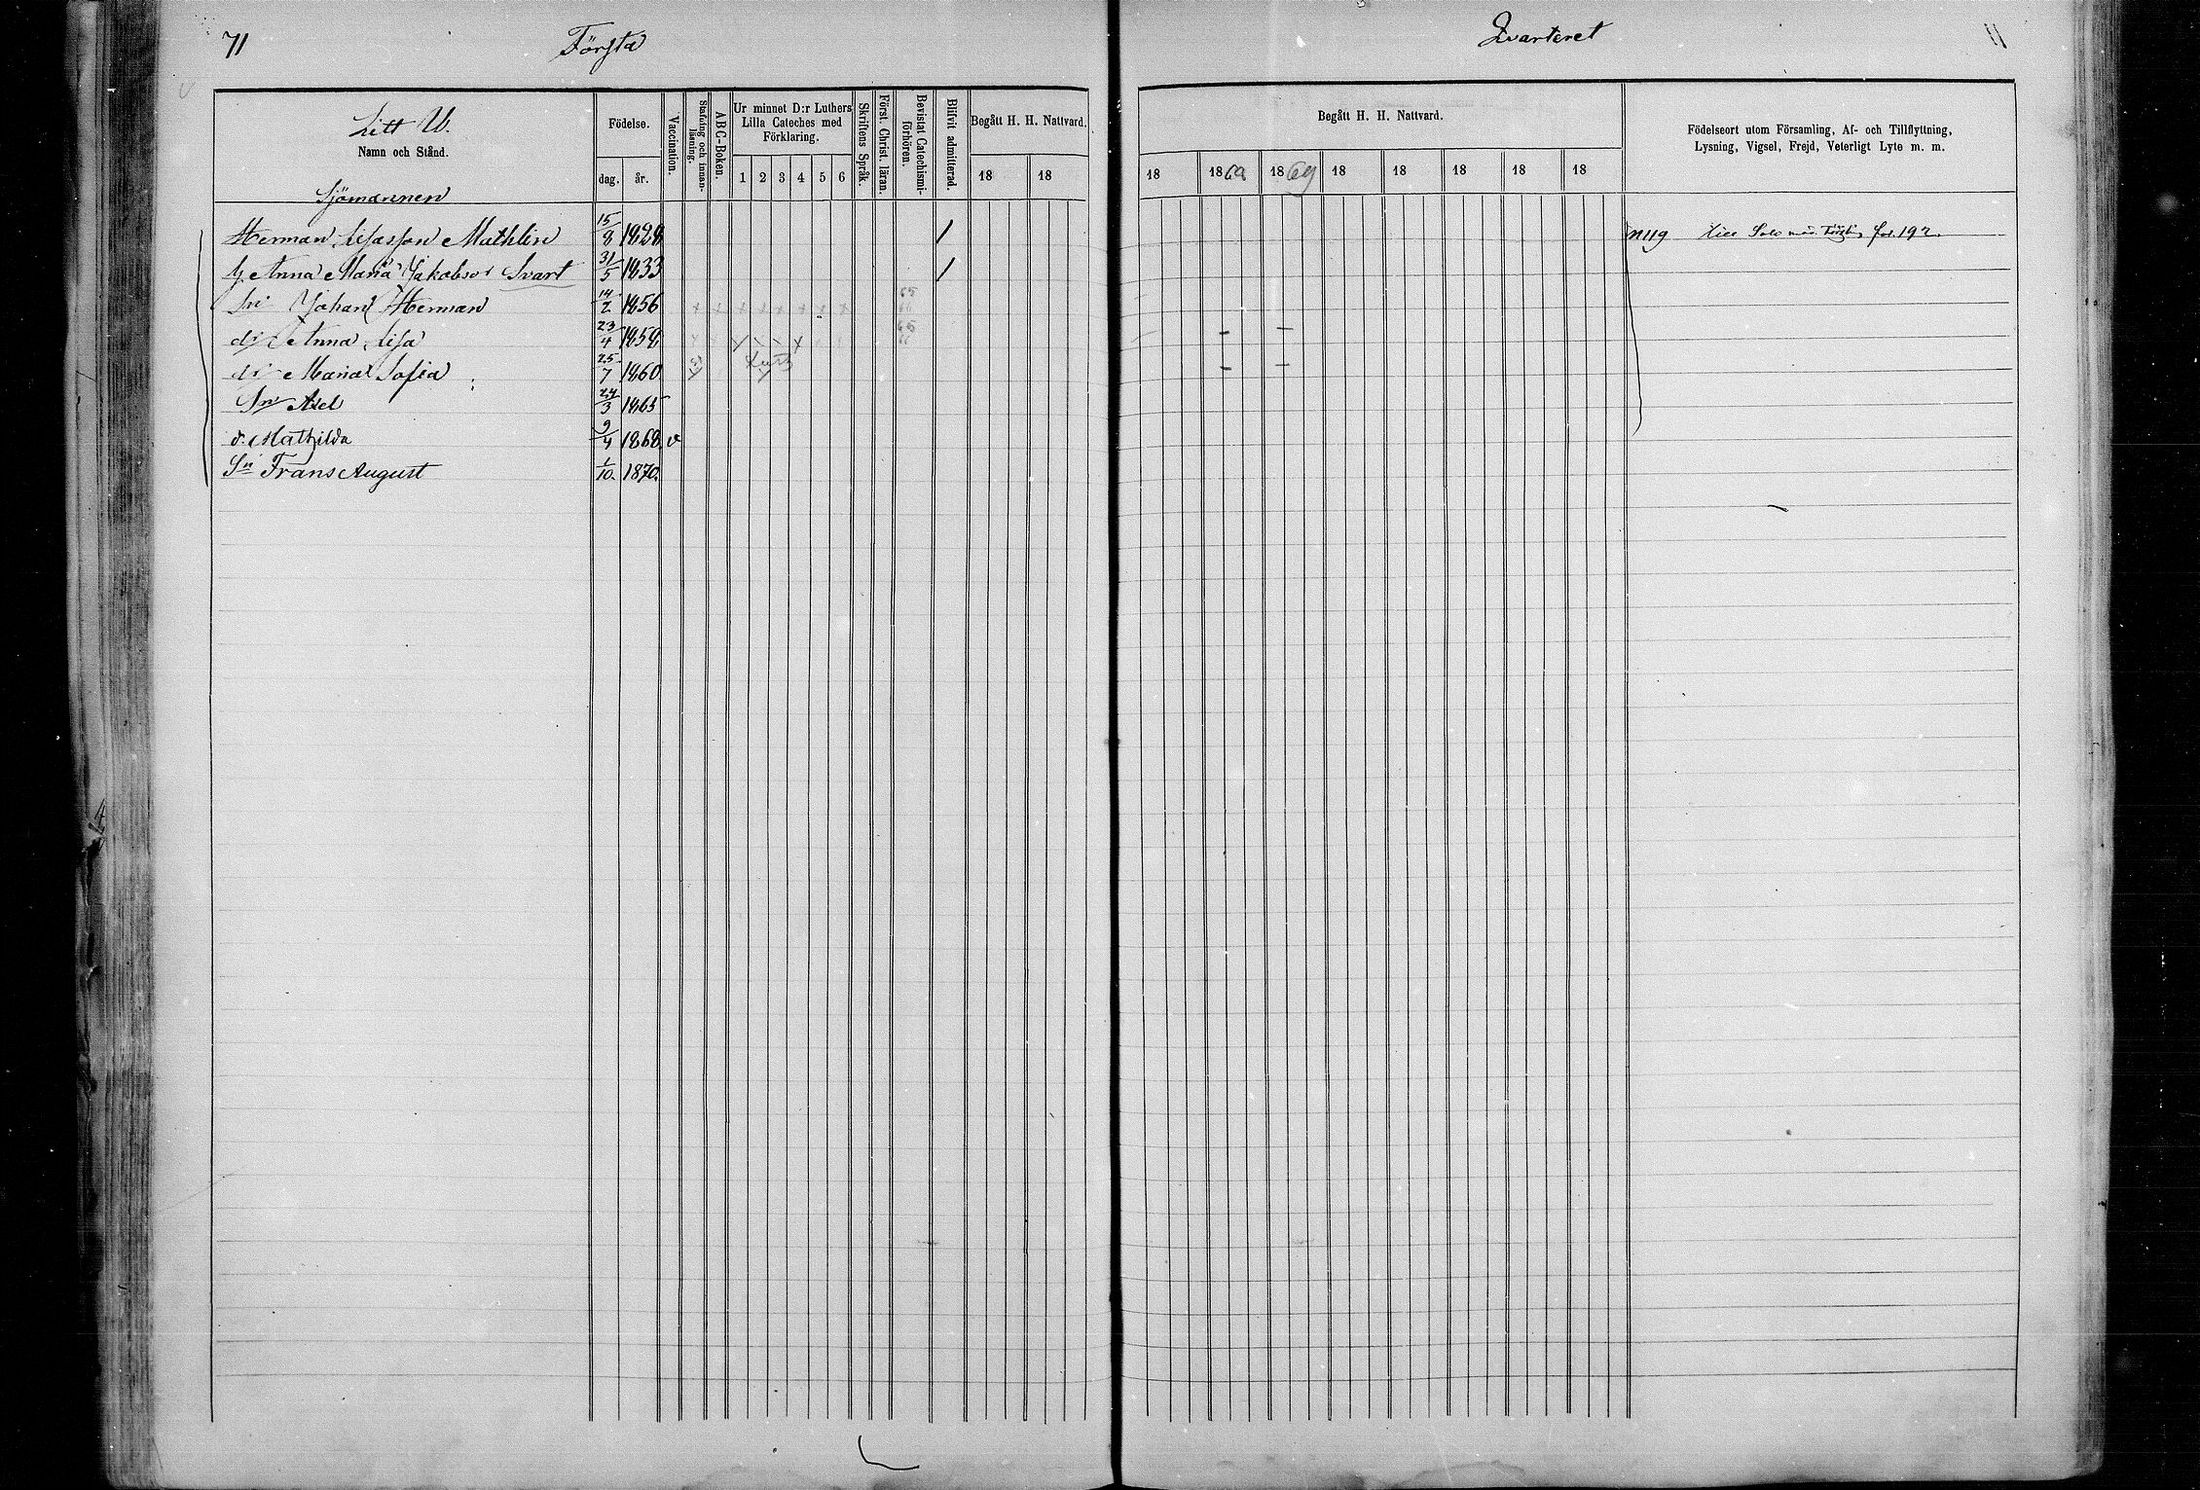 71 Första Qvarteret 11
Litt U.
Namn och Stånd.
Födelse.
dag. år.
Vaccination.
Stafning och innan-läsning.
ABC-Boken.
Ur minnet D:r Luthers
Lilla Cateches med
Förklaring.
1 2 3 4 5 6
Skriftens Språk.
Först. Christ. läran.
Bevistat Catechismi-förhören.
Blifvit admitterad.
Begått H. H. Nattvard.
18 18
Begått H. H. Nattvard.
18 1868 1869 18 18 18 18 18
Födelseort utom Församling, Af- och Tillflyttning,
Lysning, Vigsel, Frejd, Veterligt Lyte m. m.
Sjömannen
Herman Mathlin 15/8 1828 1 fol. 192.
Anna Maria Jakobsd Svart 31/5 1833 1
Sn Johan Herman 14/2 1856
dr Anna Lisa 23/4 1858
dr Maria Sofia 25/7 1860
Sn Axel 24/3 1865
d. Mathilda 9/4 1868. v
Sn Frans August 1/10. 1870.